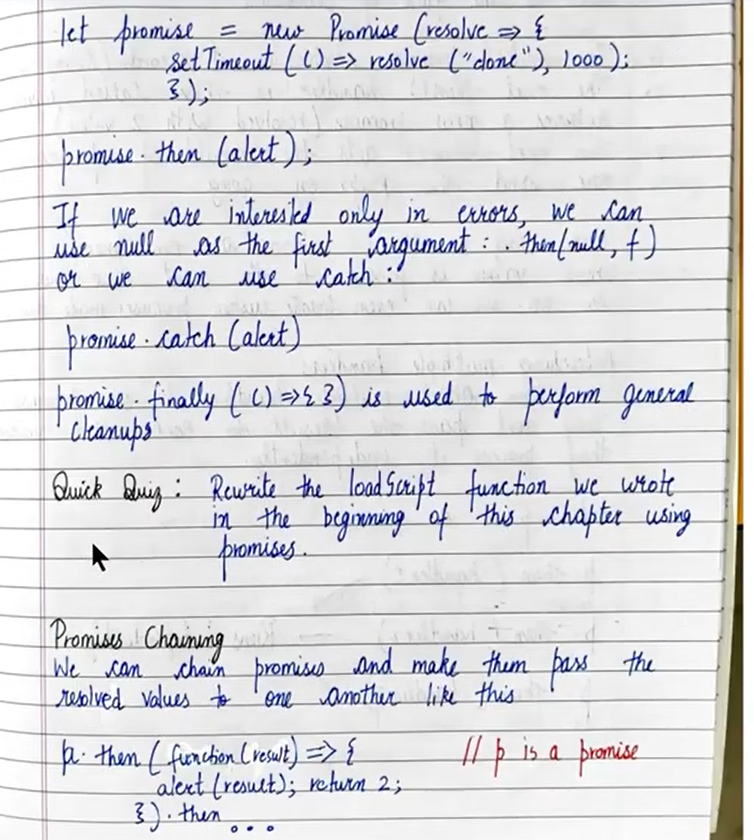 let promise = new Promise (resolve => {
setTimeout ( () => resolve ("done"), 1000);
});
promise.then (alert);
If we are interested only in errors, we can
use null as the first argument : .then(null, f)
or we can use catch :
promise.catch (alert)
promise.finally ( () => { }) is used to perform general
cleanups
Quick Quiz : Rewrite the loadScript function we wrote
in the beginning of this chapter using
promises.
Promises Chaining
We can chain promises and make them pass the
resolved values to one another like this
p.then ( function (result) => { // p is a promise
alert (result); return 2;
}).then ...